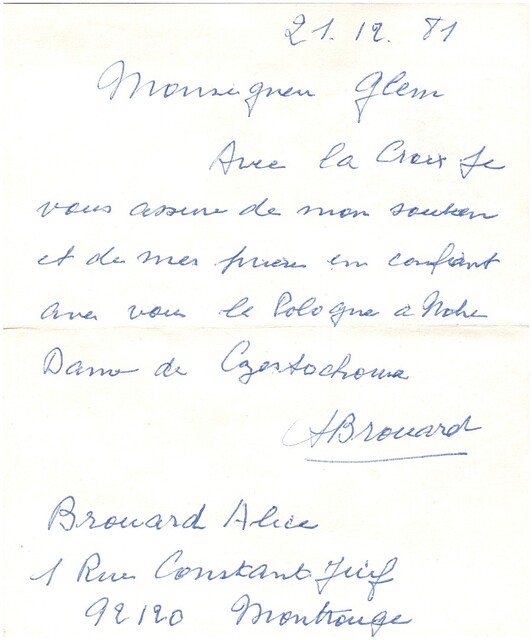 21. 12. 81
Monseigneur Glem
Avec la Croix Je
vous assure de mon soutien
et de mes prières en confiant
avec vous la Pologne à Notre
Dame de Czestochowa
ABrouard
Brouard Alice
1 Rue Constant Juif
92120 Montrouge